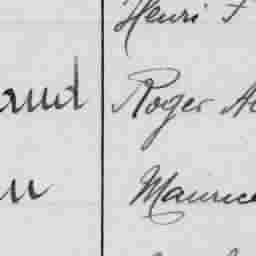 Henri F
and Roger A
u Maurice